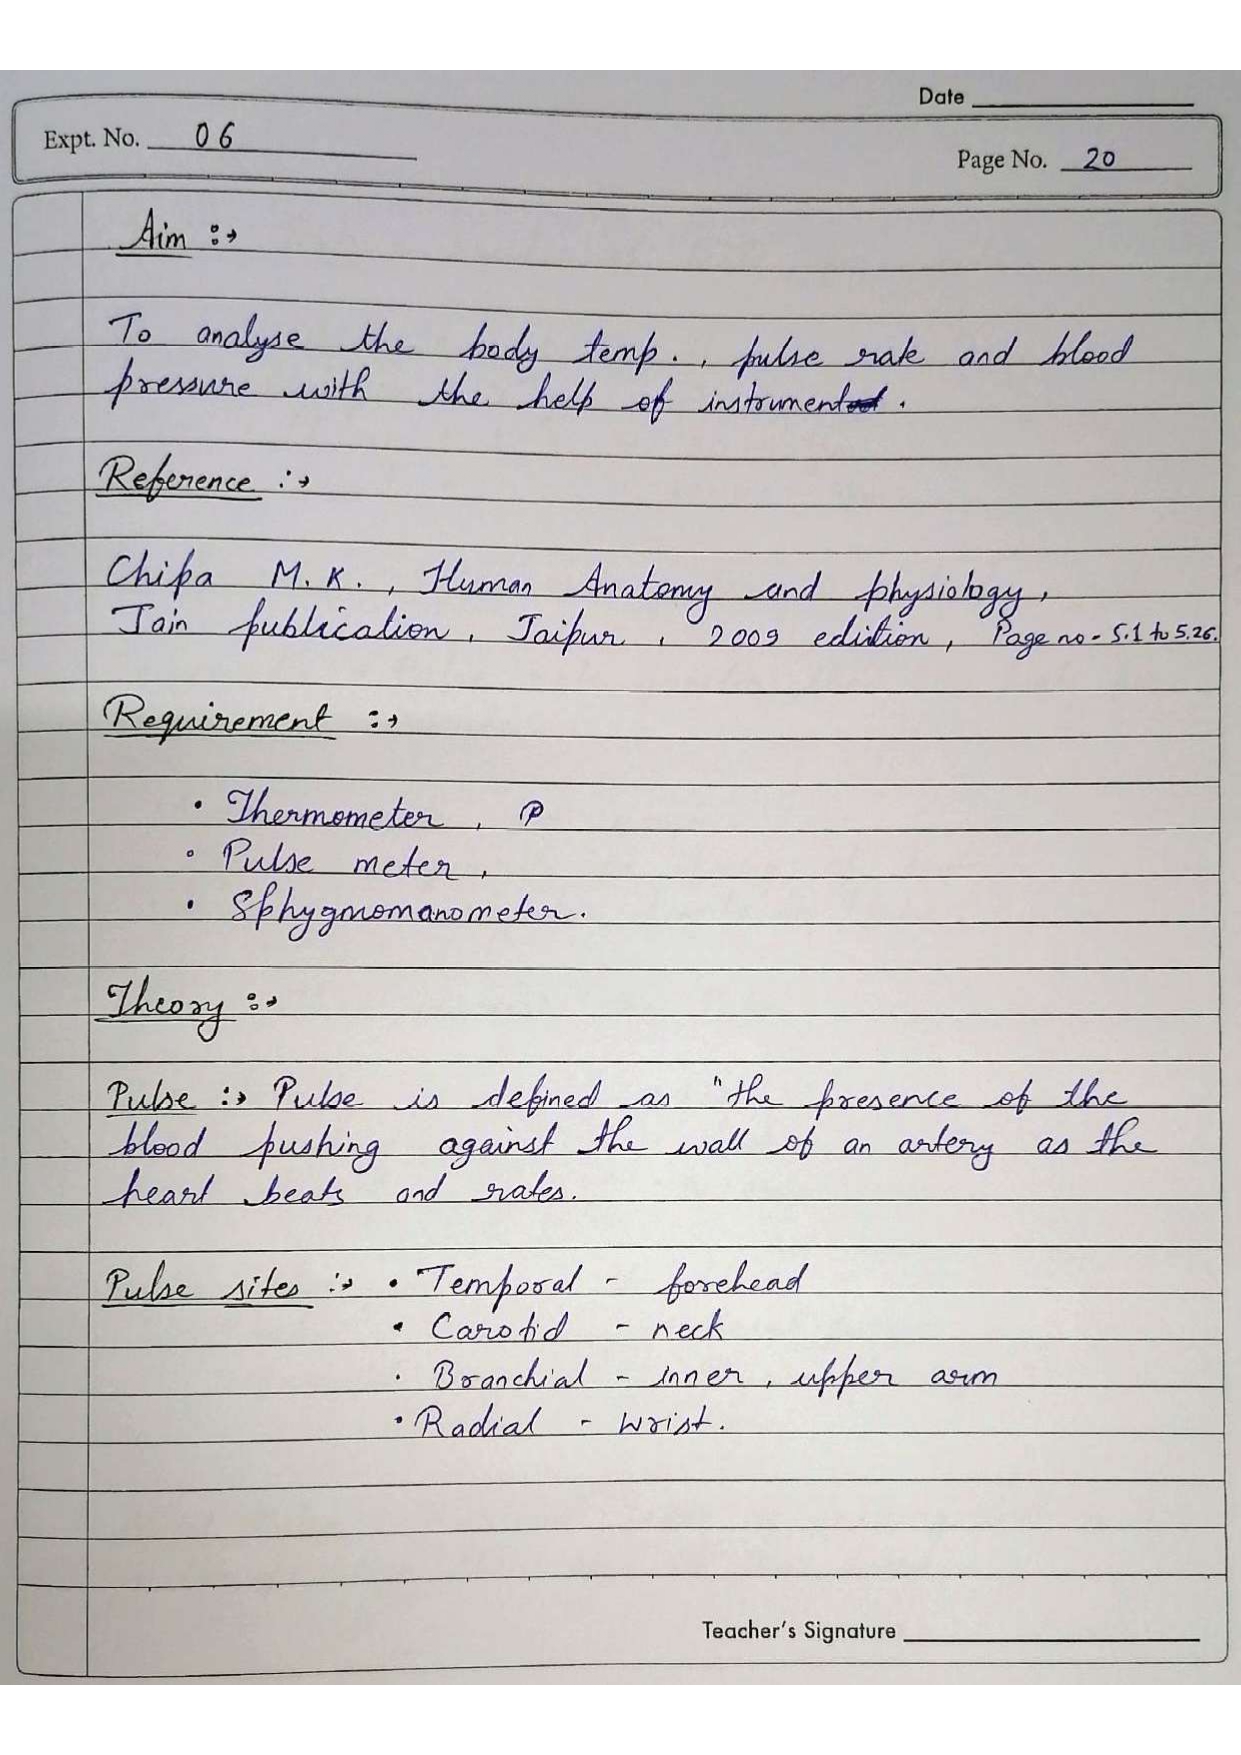 Date
Expt. No. 06
Page No. 20
Aim :→
To analyse the body temp., pulse rate and blood
pressure with the help of instrument.
Reference :→
Chipa M. K., Human Anatomy and physiology,
Jain publication, Jaipur, 2009 edition, Page no - 5.1 to 5.26.
Requirement :→
• Thermometer,
• Pulse meter,
• Sphygmomanometer.
Theory :→
Pulse :→ Pulse is defined as "the presence of the
blood pushing against the wall of an artery as the
heart beats and rates.
Pulse sites :→ • Temporal - forehead
• Carotid - neck
• Branchial - inner, upper arm
• Radial - wrist.
Teacher's Signature